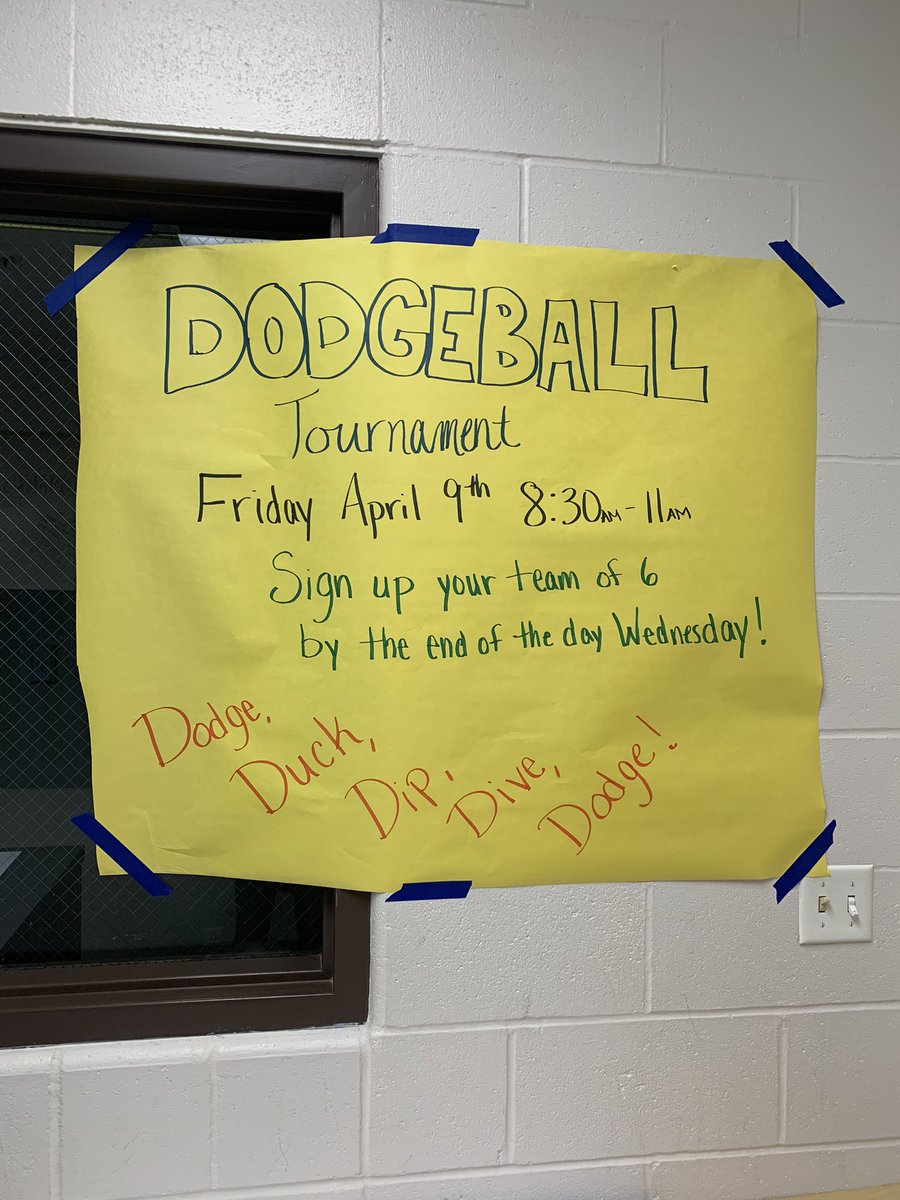 DODGEBALL
Tournament
Friday April 9th 8:30AM-11AM
Sign up your team of 6
by the end of the day Wednesday!
Dodge,
Duck,
Dip,
Dive,
Dodge!